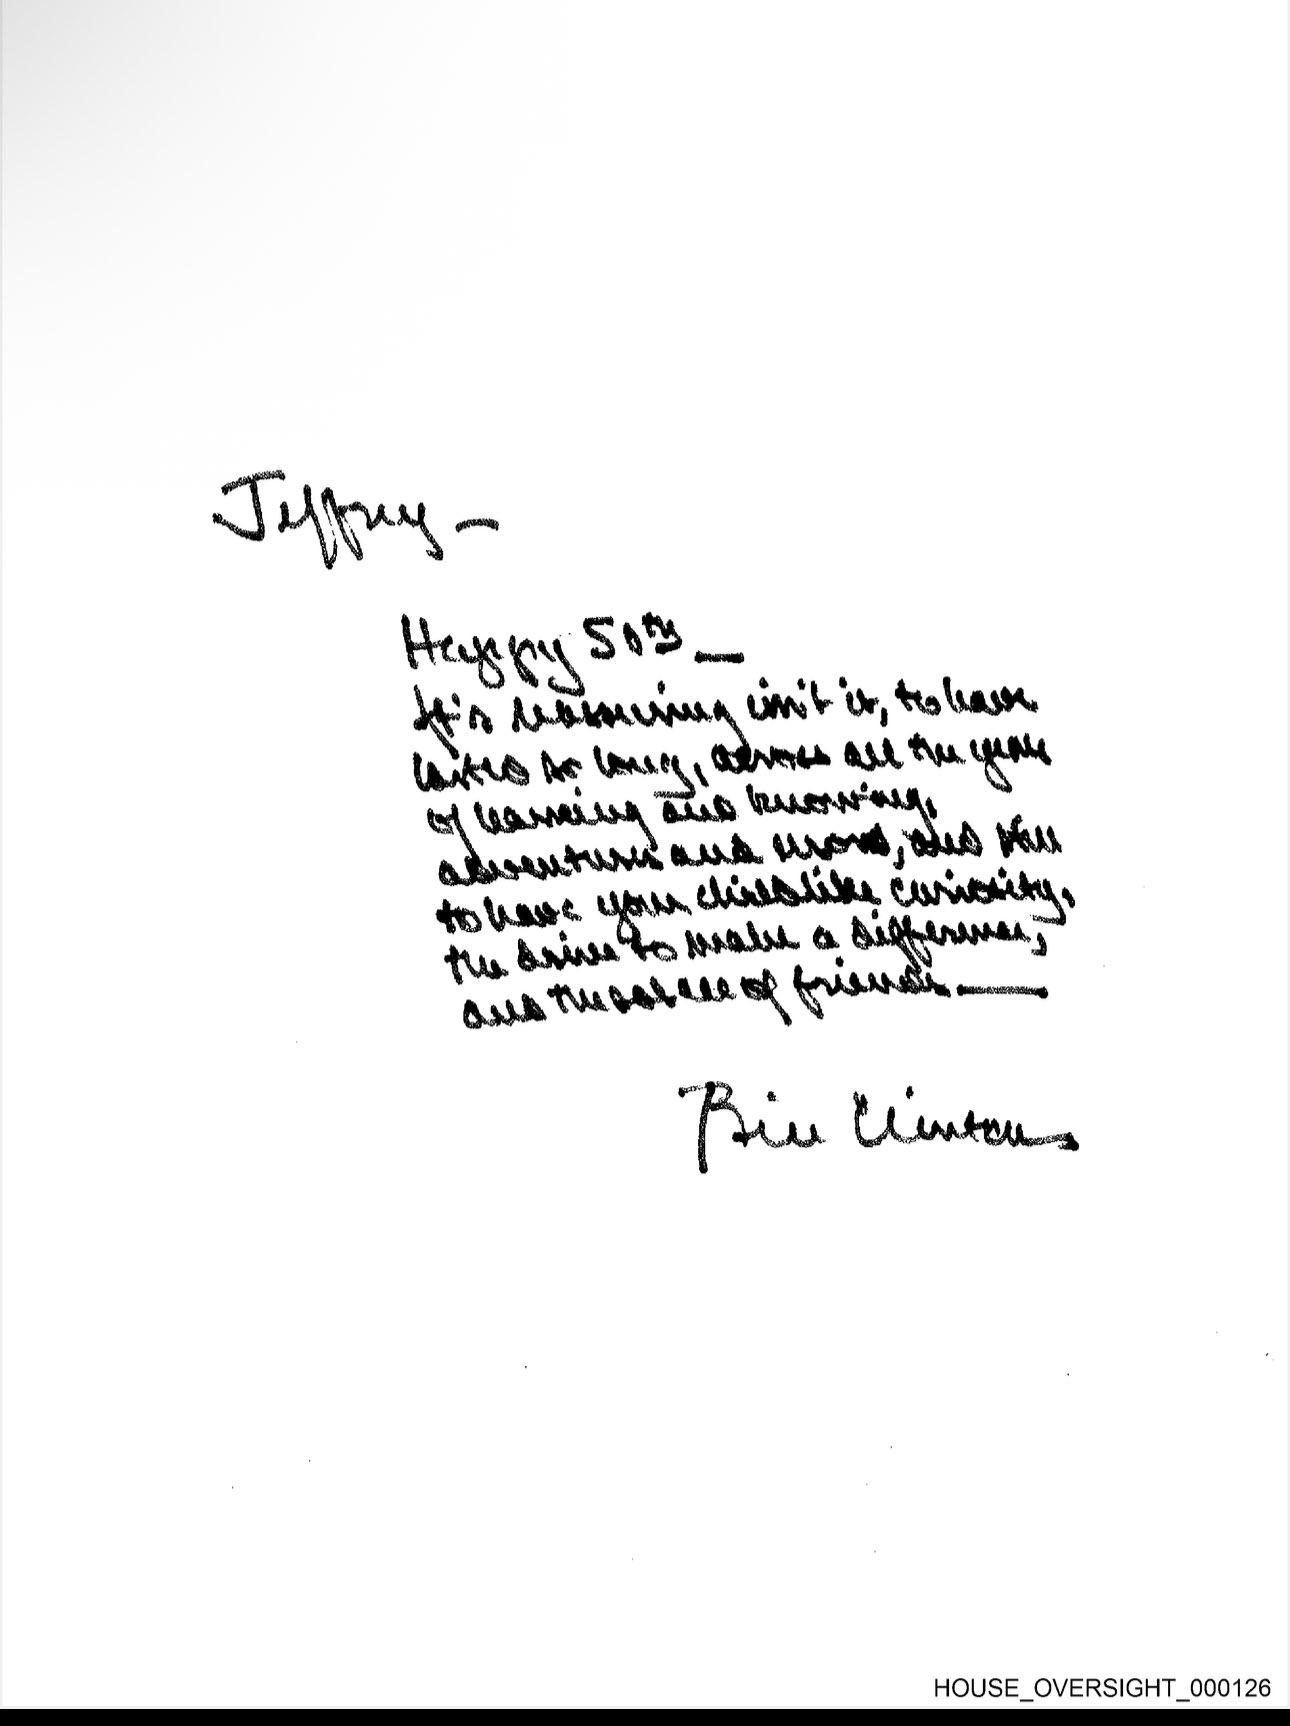 Jeffrey —
Happy 50th —
It's reassuring isn't it, to have
lasted so long, across all the years
of learning and knowing,
adventures and and still
to have your childlike curiosity,
the drive to make a difference,
and the solace of friends —
Bill Clinton
HOUSE_OVERSIGHT_000126